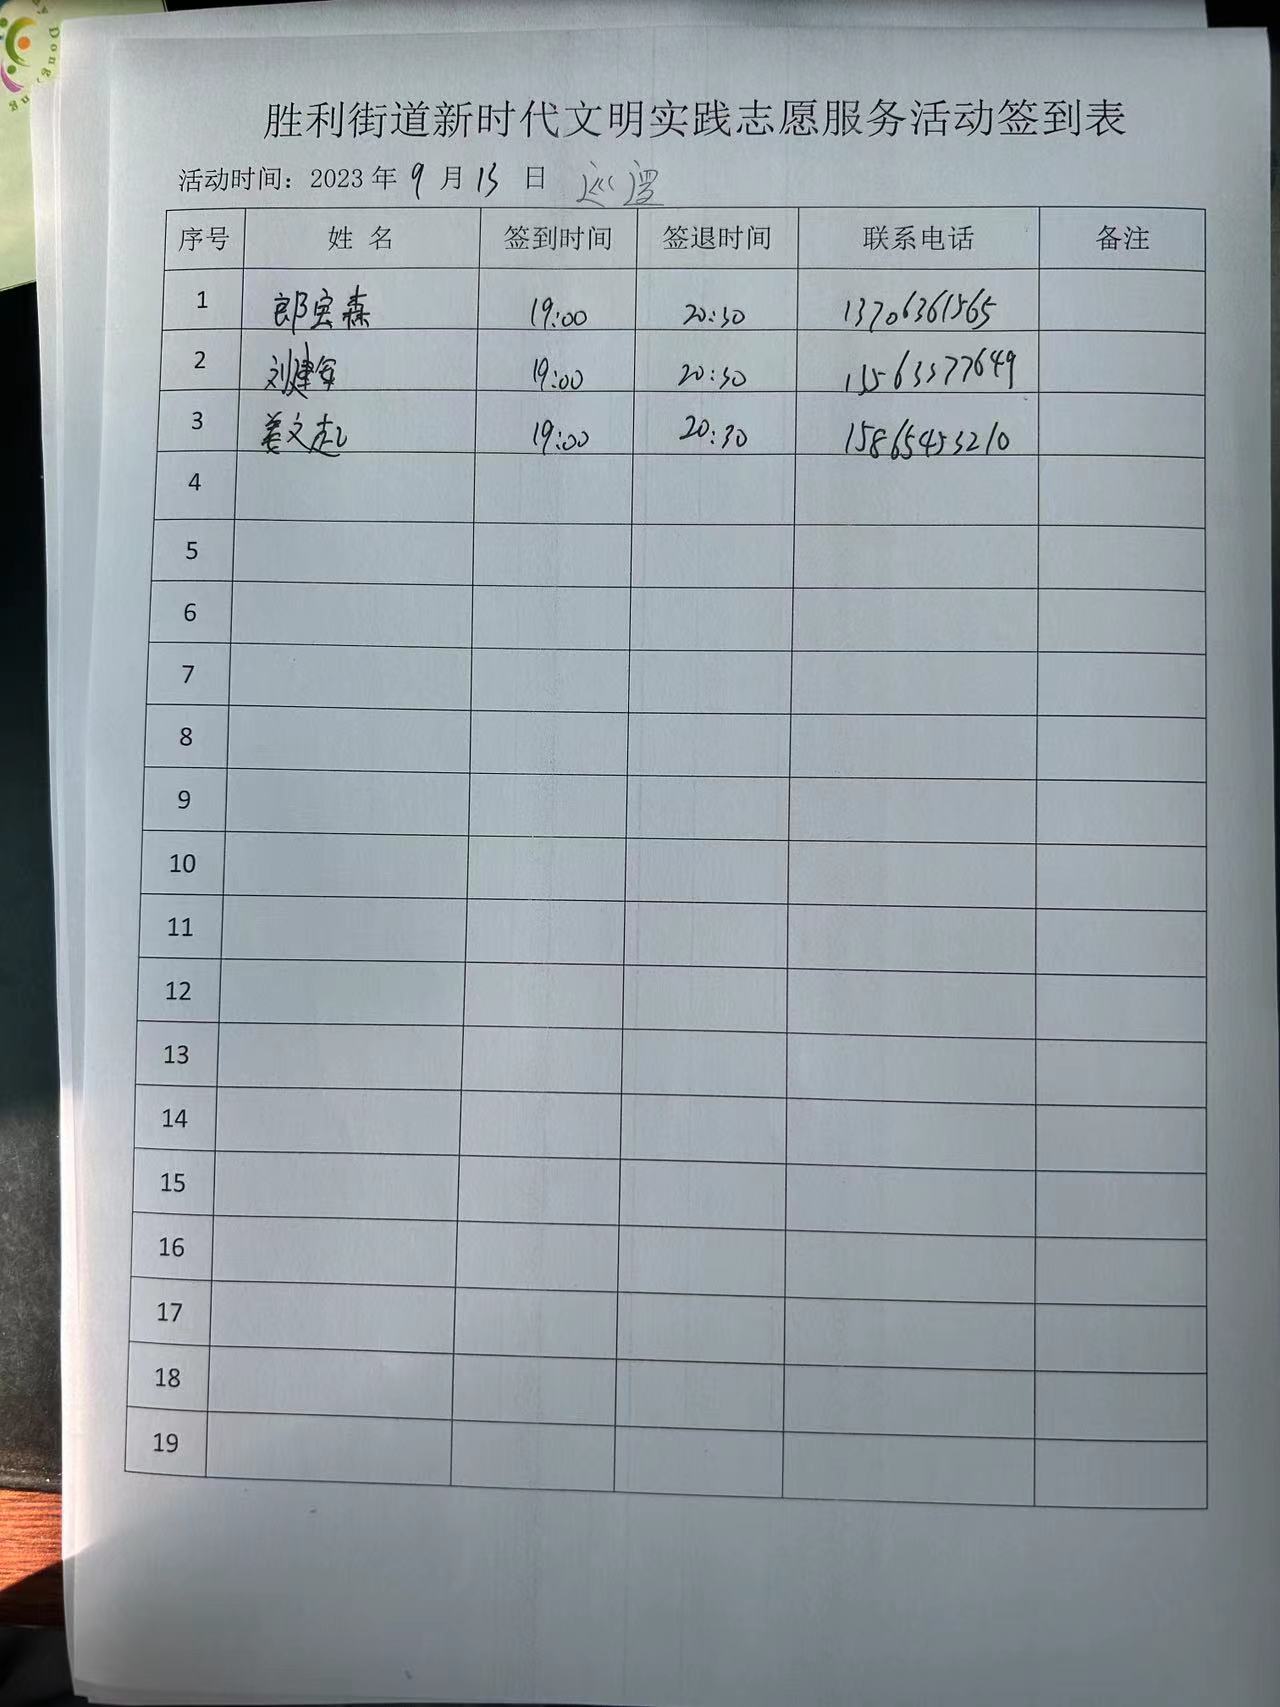 胜利街道新时代文明实践志愿服务活动签到表
活动时间：2023年 9 月 13 日 巡逻
序号 姓 名 签到时间 签退时间 联系电话 备注
1 郎宝森 19:00 20:30 13706361565
2 刘建军 19:00 20:30 15563377649
3 姜文 19:00 20:30 15865453210
4
5
6
7
8
9
10
11
12
13
14
15
16
17
18
19